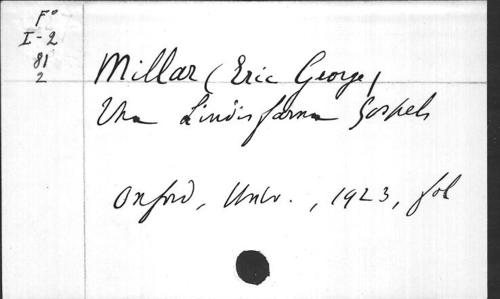 F°
I-2
81
2
Millar (Eric George)
The Lindisfarne Gospels
Oxford, Univ., 1923, fol